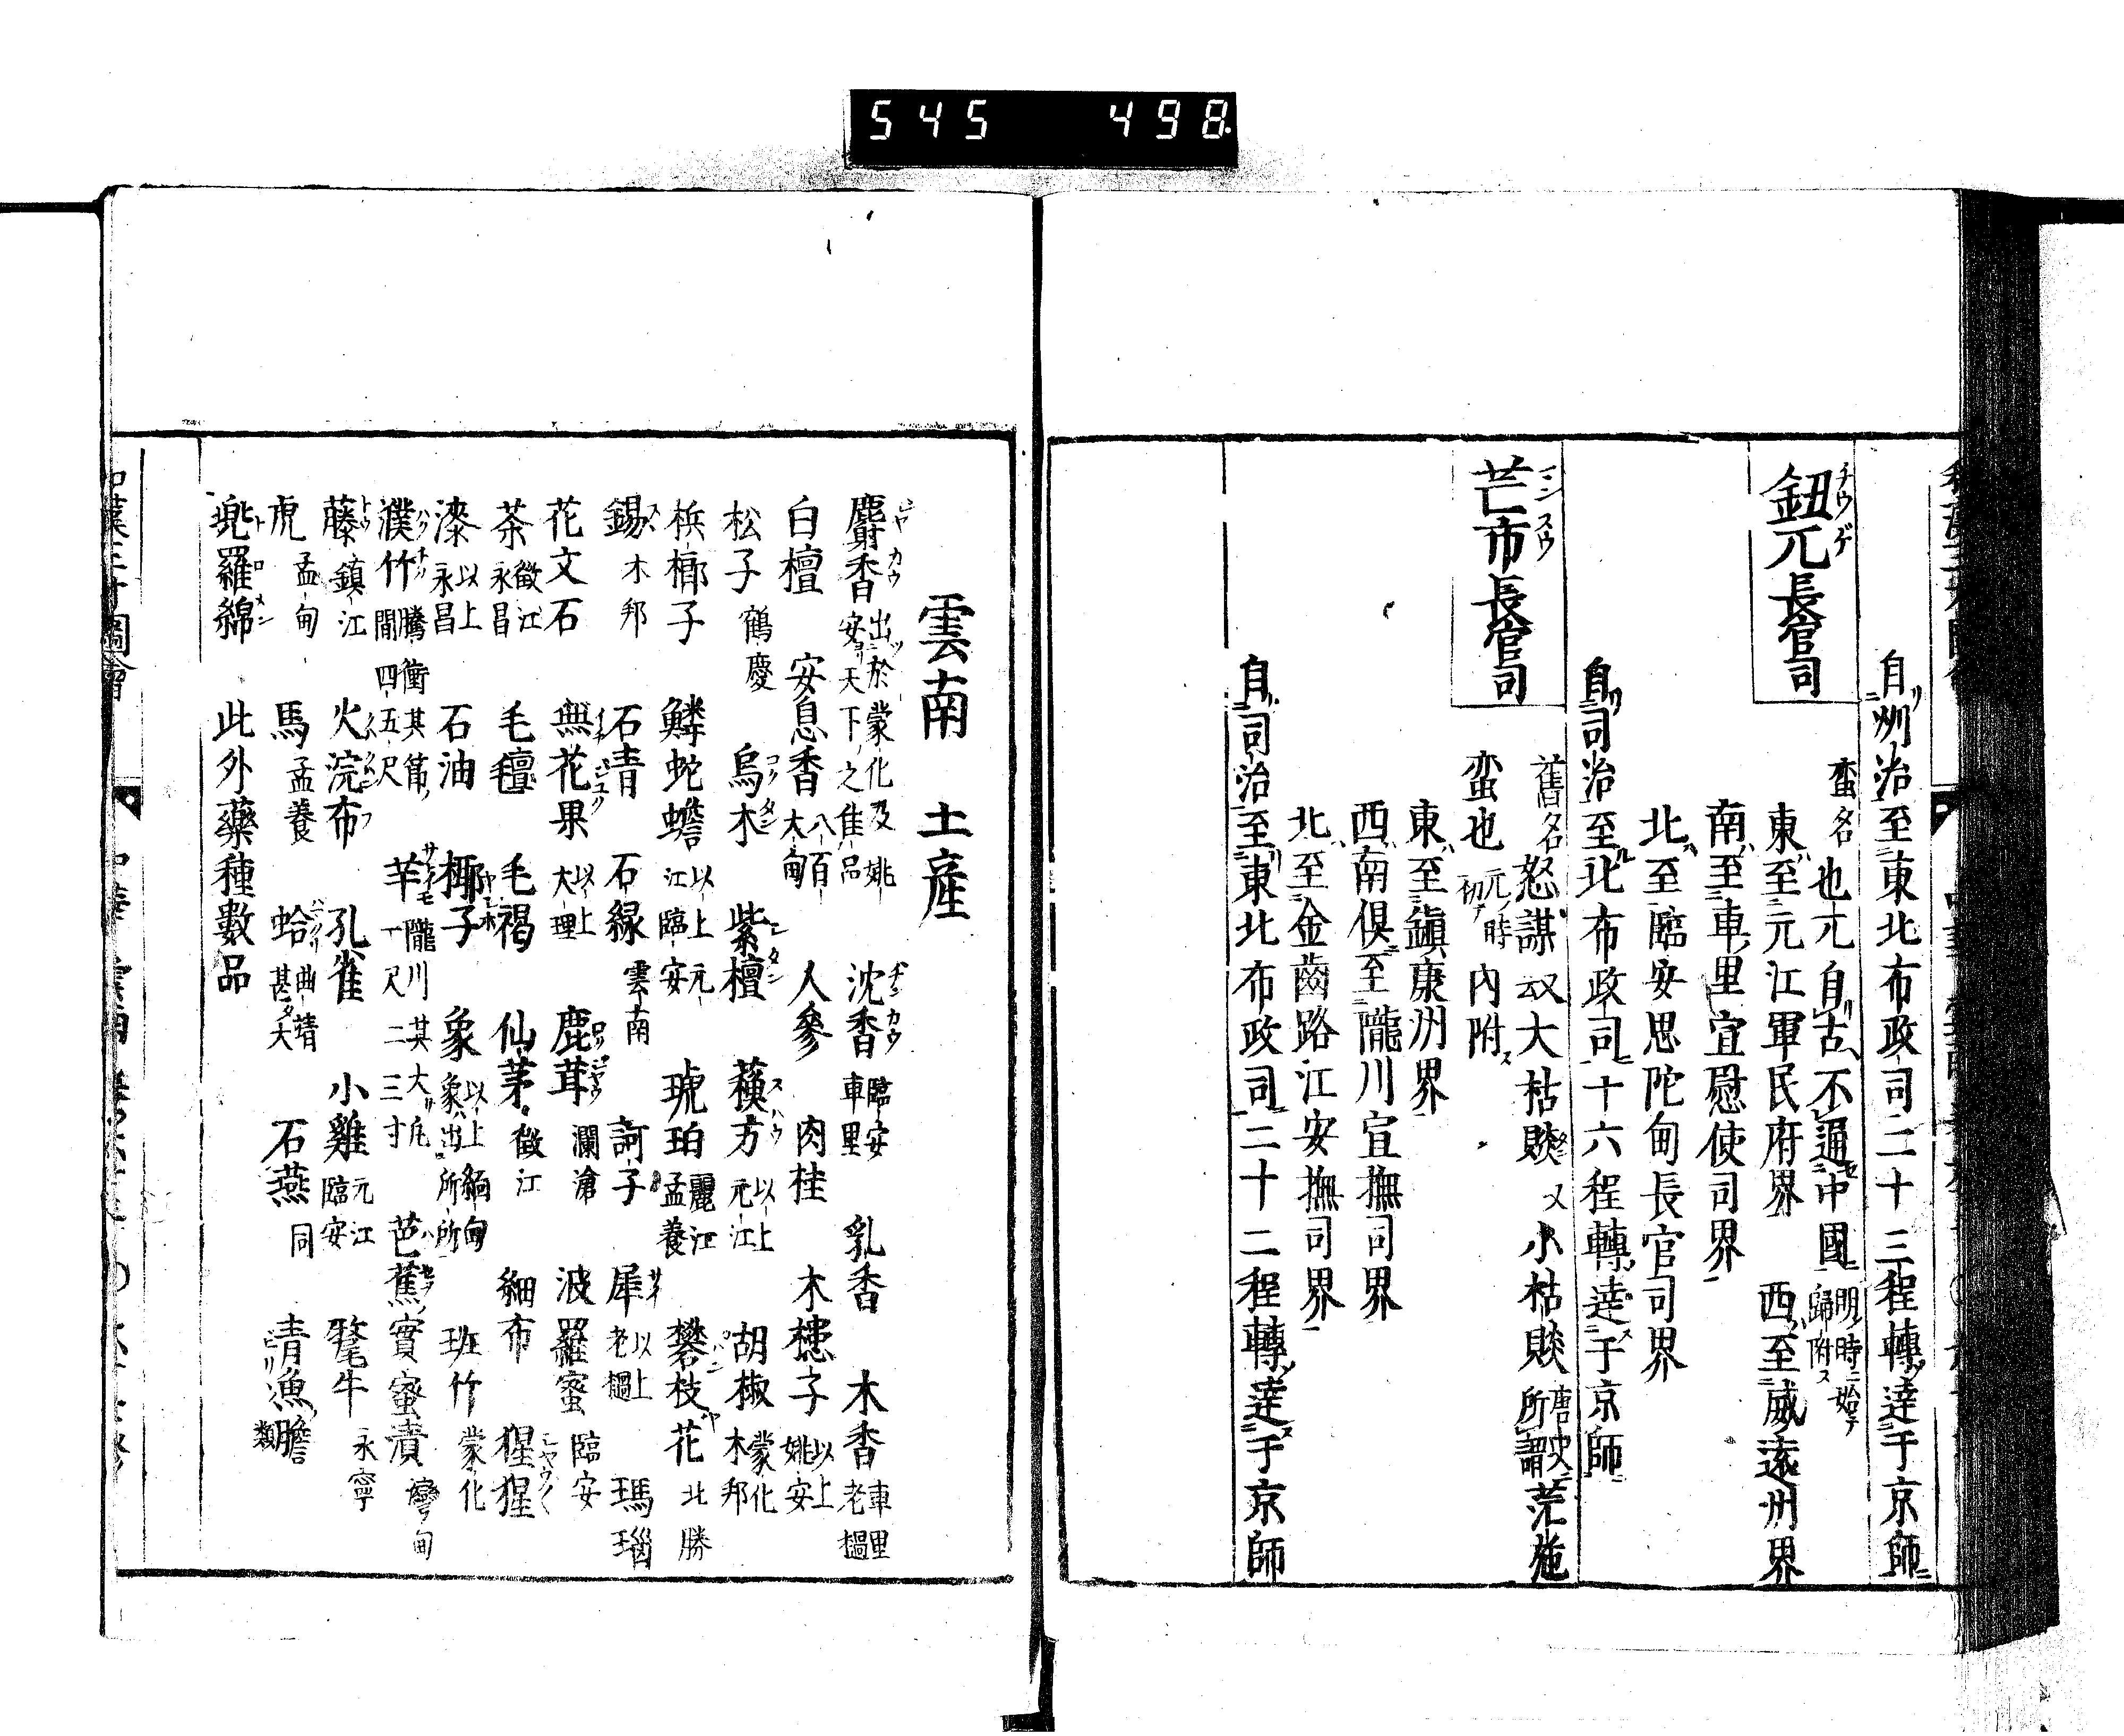 545 498
自州治至東北布政司二十三程轉達于京師
鈕兀長官司
蛮名也亢自古不通中國 明時始歸附
東至元江軍民府界 西至威遠州界
南至車里宣慰使司界
北至臨安思陀甸長官司界
自司治至北布政司十六程轉達于京師
芒市長官司
舊名怒謀又大枯賧又小枯賧 唐史所謂茫施
蛮也 元時初内附
東至鎮康州界
西南俱至隴川宣撫司界
北至金齒路江安撫司界
自司治至東北布政司二十二程轉達于京師
雲南 土產
麝香 出於蒙化及姚安天下之佳品 沈香 臨安車里 乳香 木香 車里老撾
白檀 安息香 八百大甸 人參 肉桂 木槵子 以上姚安
松子 鶴慶 烏木 紫檀 蘓方 以上元江 胡椒 蒙化木邦
梹榔子 鱗蛇蟾 以上元江臨安 琥珀 麗江孟養 礬枝花 北勝
錫 木邦 石青 石緑 雲南 訶子 犀 以上老撾 瑪瑙
花文石 無花果 以上大理 鹿茸 瀾滄 波羅蜜 臨安
茶 徵江永昌 毛氊 毛褐 仙茅 徵江 細布 猩猩
漆 以上永昌 石油 椰子 象 以上緬甸象出所所 班竹 蒙化
濮竹 騰衝其節間四五尺 芋 隴川其大一尺二三寸 芭蕉實蜜漬 灣甸
藤 鎮江 火浣布 孔雀 小雞 元江臨安 氂牛 永寧
虎 孟甸 馬 孟養 蛤 曲靖甚大 石燕 同 青漁膽 類
兠羅綿 此外藥種數品